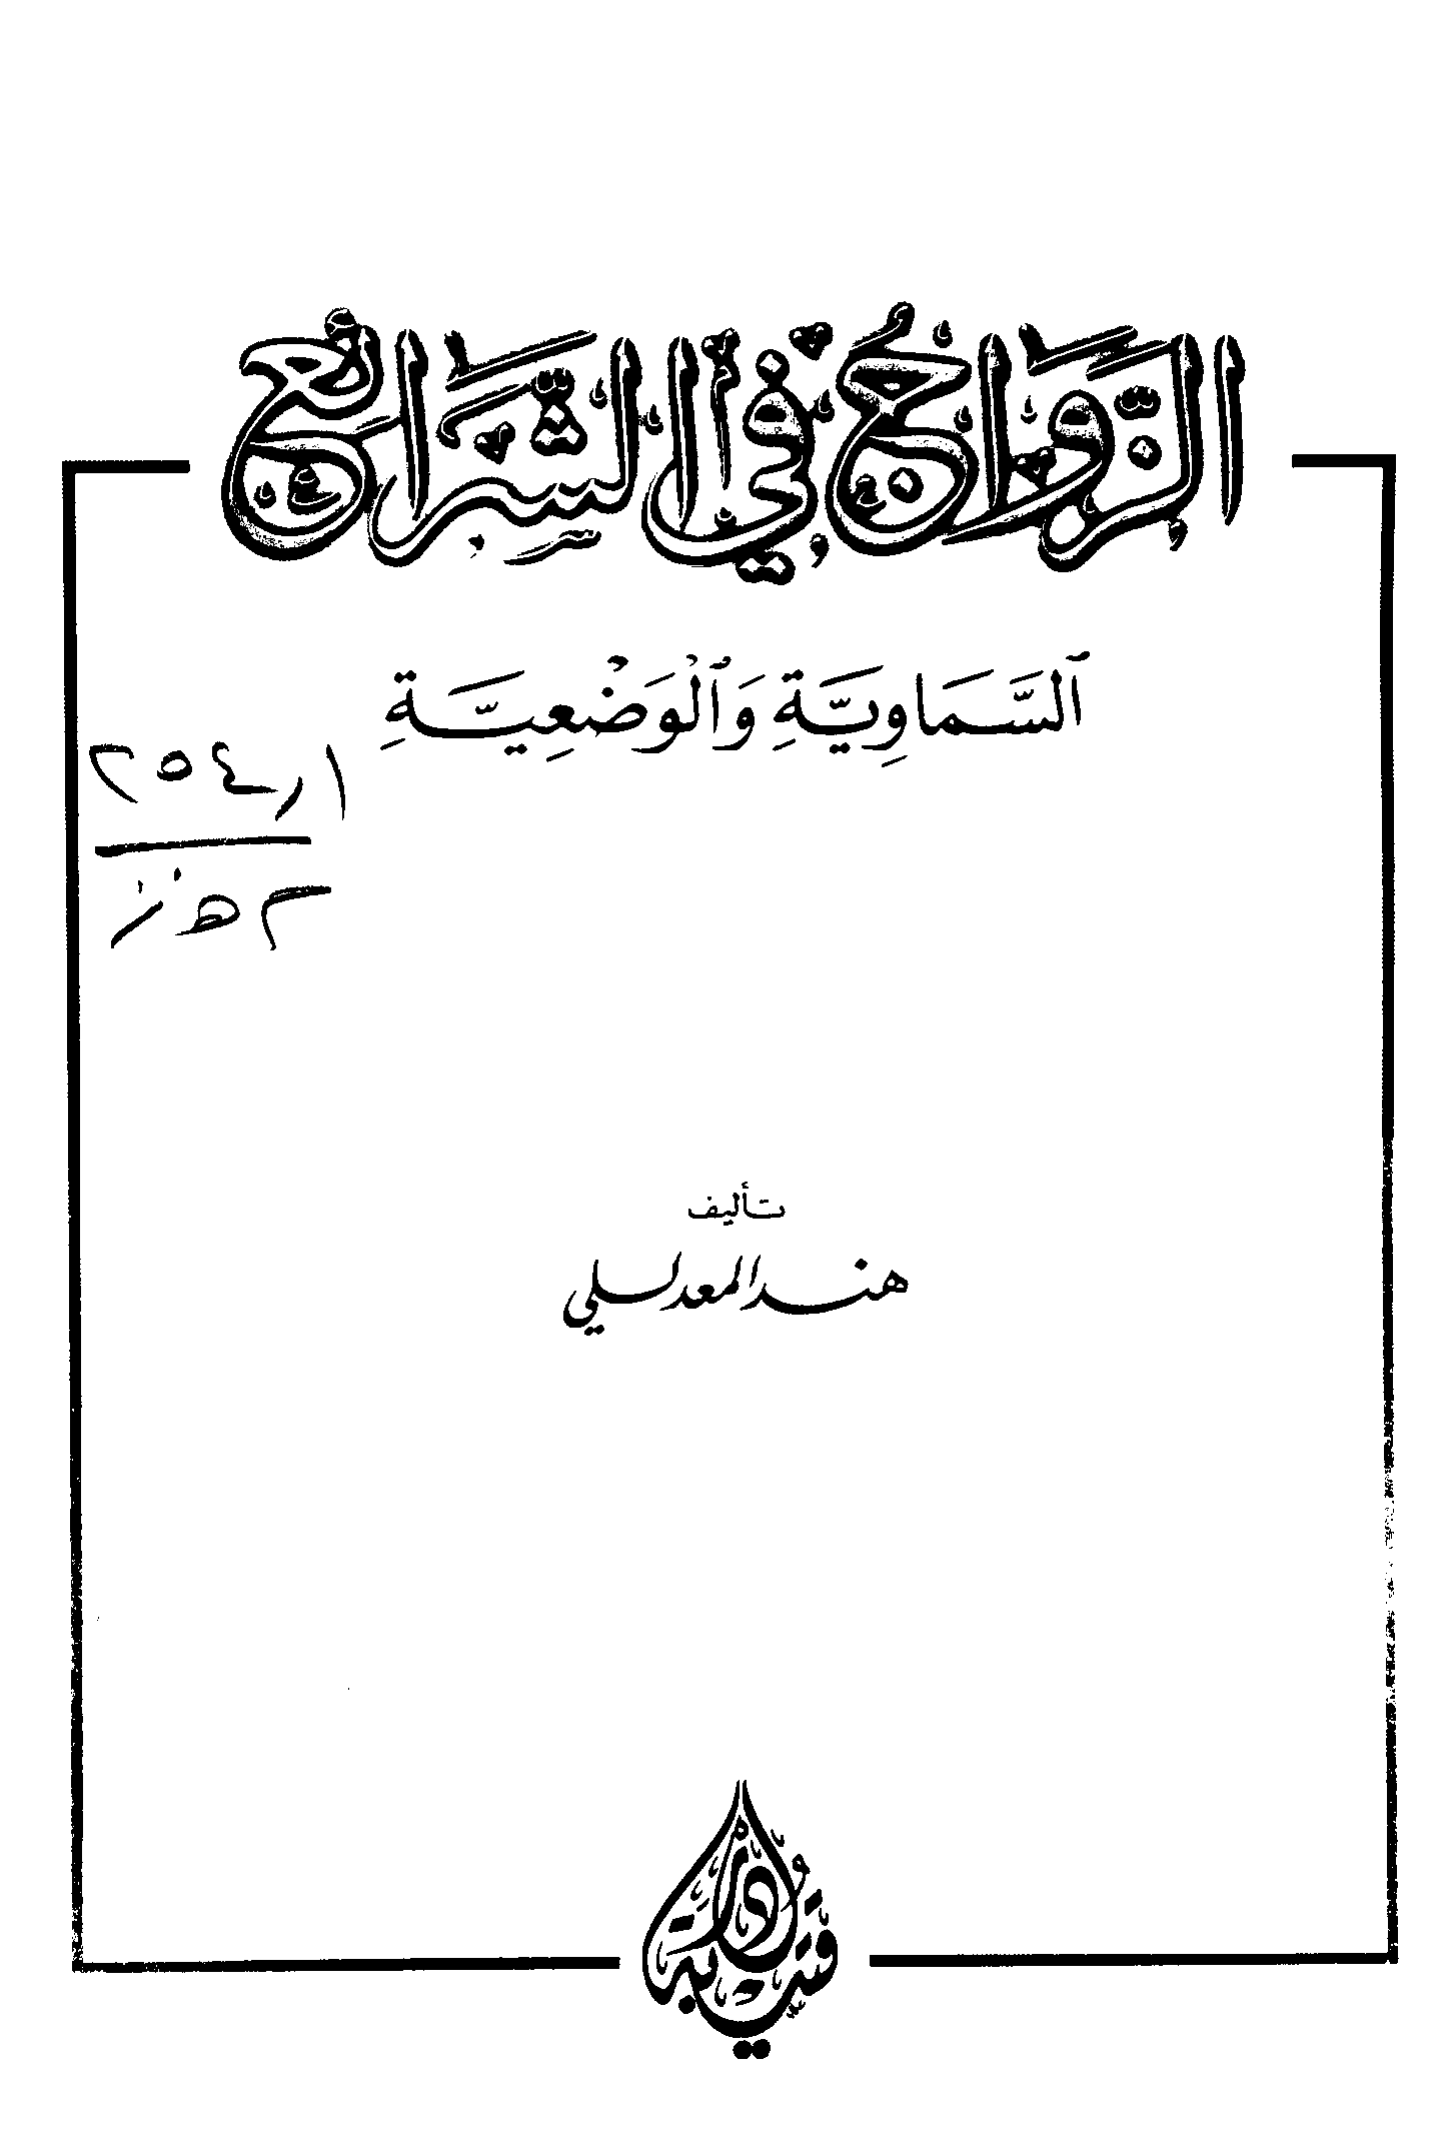 الزَّوَاجُ فِي الشَّرَائِعِ
ٱلسَّمَاوِيَّةِ وَٱلْوَضْعِيَّةِ
٢٥٤٫١
هـ ز
تأليف
هند المعدللي
دار قتيبة